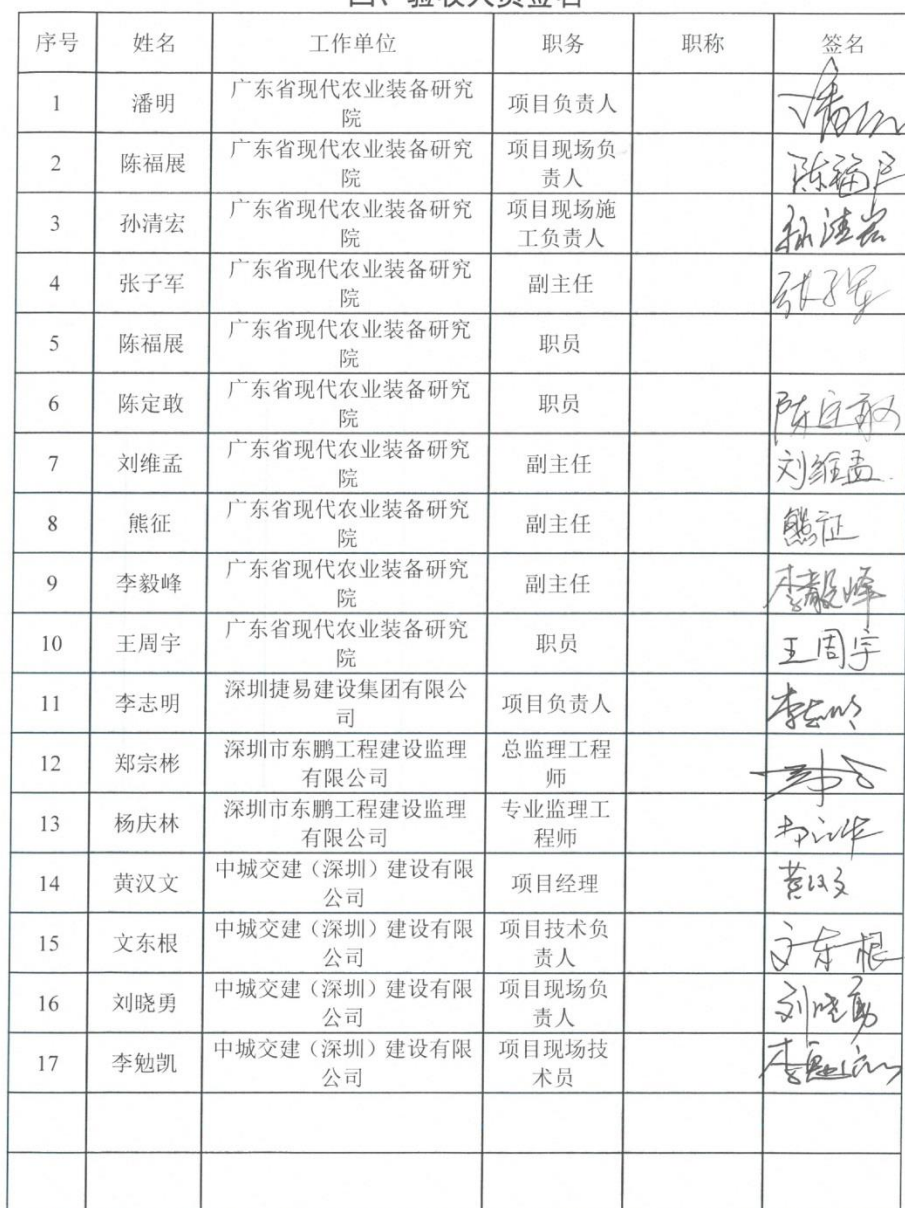 四、验收人员签名
序号 姓名 工作单位 职务 职称 签名
1 潘明 广东省现代农业装备研究
院 项目负责人 潘明
2 陈福展 广东省现代农业装备研究
院 项目现场负
责人 陈福展
3 孙清宏 广东省现代农业装备研究
院 项目现场施
工负责人 孙清宏
4 张子军 广东省现代农业装备研究
院 副主任 张子军
5 陈福展 广东省现代农业装备研究
院 职员
6 陈定敢 广东省现代农业装备研究
院 职员 陈定敢
7 刘维孟 广东省现代农业装备研究
院 副主任 刘维孟
8 熊征 广东省现代农业装备研究
院 副主任 熊征
9 李毅峰 广东省现代农业装备研究
院 副主任 李毅峰
10 王周宇 广东省现代农业装备研究
院 职员 王周宇
11 李志明 深圳捷易建设集团有限公
司 项目负责人 李志明
12 郑宗彬 深圳市东鹏工程建设监理
有限公司 总监理工程
师
13 杨庆林 深圳市东鹏工程建设监理
有限公司 专业监理工
程师
14 黄汉文 中城交建（深圳）建设有限
公司 项目经理 黄汉文
15 文东根 中城交建（深圳）建设有限
公司 项目技术负
责人 文东根
16 刘晓勇 中城交建（深圳）建设有限
公司 项目现场负
责人 刘晓勇
17 李勉凯 中城交建（深圳）建设有限
公司 项目现场技
术员 李勉凯